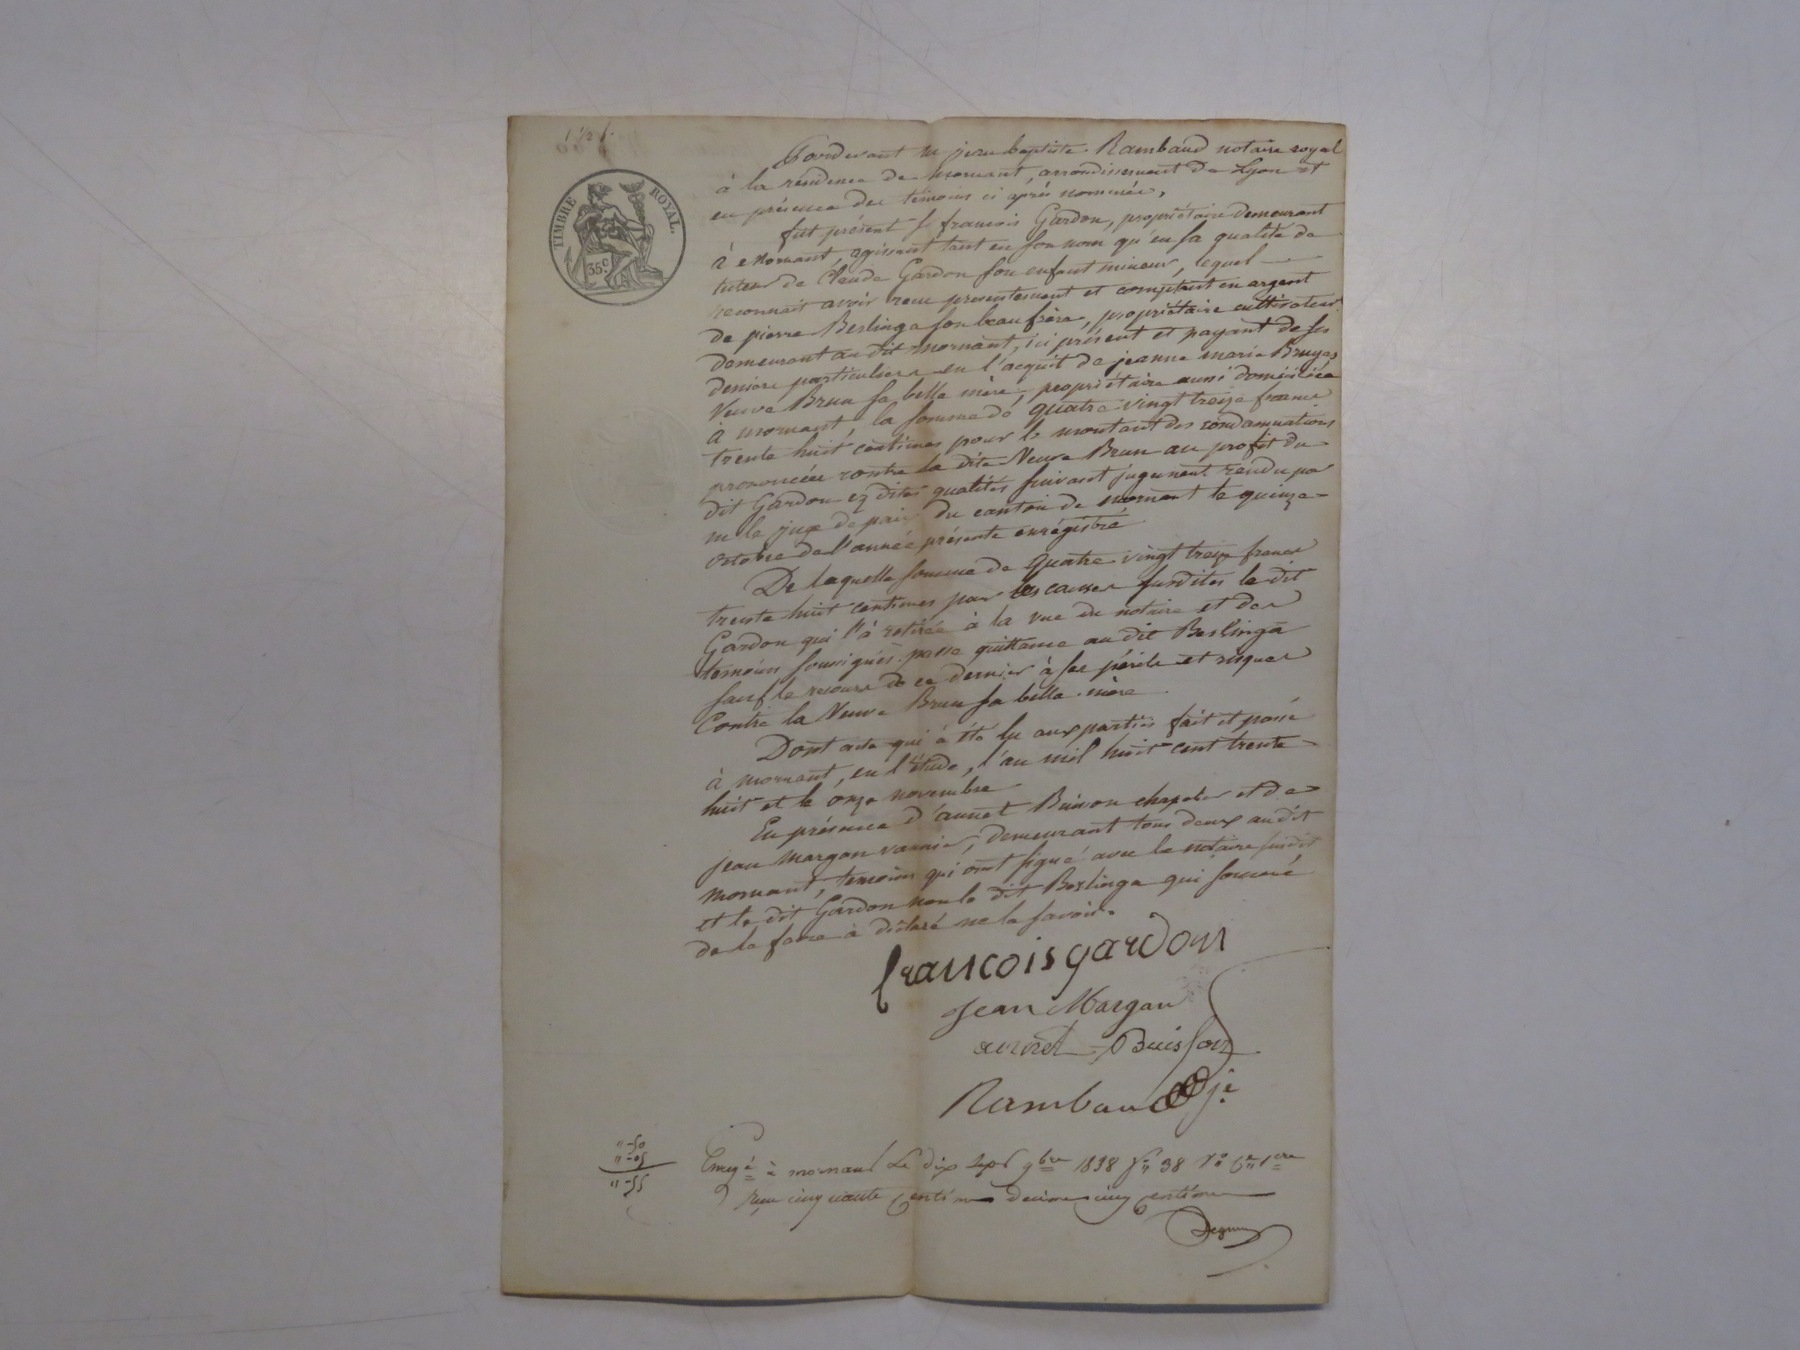 TIMBRE ROYAL.
35 c
Pardevant me jean baptiste Rambaud notaire royal
à la résidence de mornant, arrondissement de Lyon et
en présence des témoins ci après nommés,
fut présent sr francois Gardon, propriétaire demeurant
à mornant, agissant tant en son nom qu'en sa qualité de
tuteur de Claude Gardon son enfant mineur, lequel
reconnait avoir reçu presentement et comptant en argent
de pierre Berlinga son beau frère, propriétaire cultivateur
demeurant au dit mornant, ici présent et payant de ses
deniers particuliers en l'acquit de jeanne marie Bruyas
Veuve Brun sa belle mère, propriétaire aussi domiciliée
à mornant, la somme de quatre vingt treize francs
trente huit centimes pour le montant des condamnations
prononcées contre la dite Veuve Brun au profit du
dit Gardon ez dites qualités suivant jugement rendu par
m le juge de paix du canton de mornant le quinze
octobre de l'année présente enrégistré
De laquelle somme de quatre vingt treize francs
trente huit centimes pour les causes susdites le dit
Gardon qui l'à retirée à la vue du notaire et des
témoins soussignés passe quittance au dit Berlinga
sauf le recours de ce dernier à ses périls et risques
Contre la Veuve Brun sa belle mère
Dont acte qui à été lu aux parties fait et passé
à mornant, en l'étude, l'an mil huit cent trente
huit et le onze novembre
En présence d'annet Buisson chapelier et de
jean margan vannier, demeurant tous deux au dit
mornant, témoins qui ont signé avec le notaire susdit
et le dit Gardon non le dit Berlinga qui sommé
de le faire à déclaré ne le savoir.
francois gardon
Jean Margan
annet Buisson
Rambaud
"-50
"-05
"-55
Enregé à mornant Le dix sept 9bre 1838 fo 38
reçu cinquante Centimes decime cinq Centimes